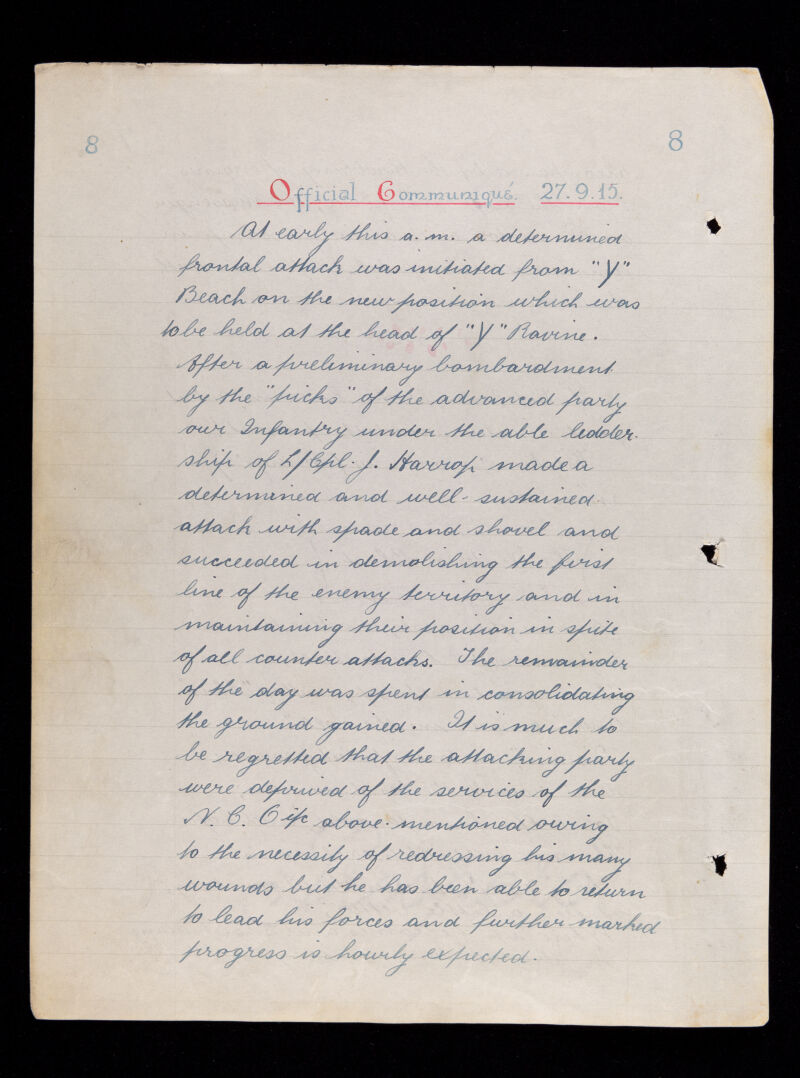 8
8
Official Communiqué. 27.9.15.
At early this a.m. a determined
frontal attack was initiated from "Y"
Beach on the new position which was
to be held at the head of "Y" Ravine.
After a preliminary bombardment
by the "picks" of the advanced party
our Infantry under the able leader-
ship of L/Cpl. J. Harrop made a
determined and well-sustained
attack with spade and shovel and
succeeded in demolishing the first
line of the enemy territory and in
maintaining their position in spite
of all counter attacks. The remainder
of the day was spent in consolidating
the ground gained. It is much to
be regretted that the attacking party
were deprived of the services of the
N.C.O i/c above-mentioned owing
to the necessity of redressing his many
wounds but he has been able to return
to lead his forces and further marked
progress is hourly expected.